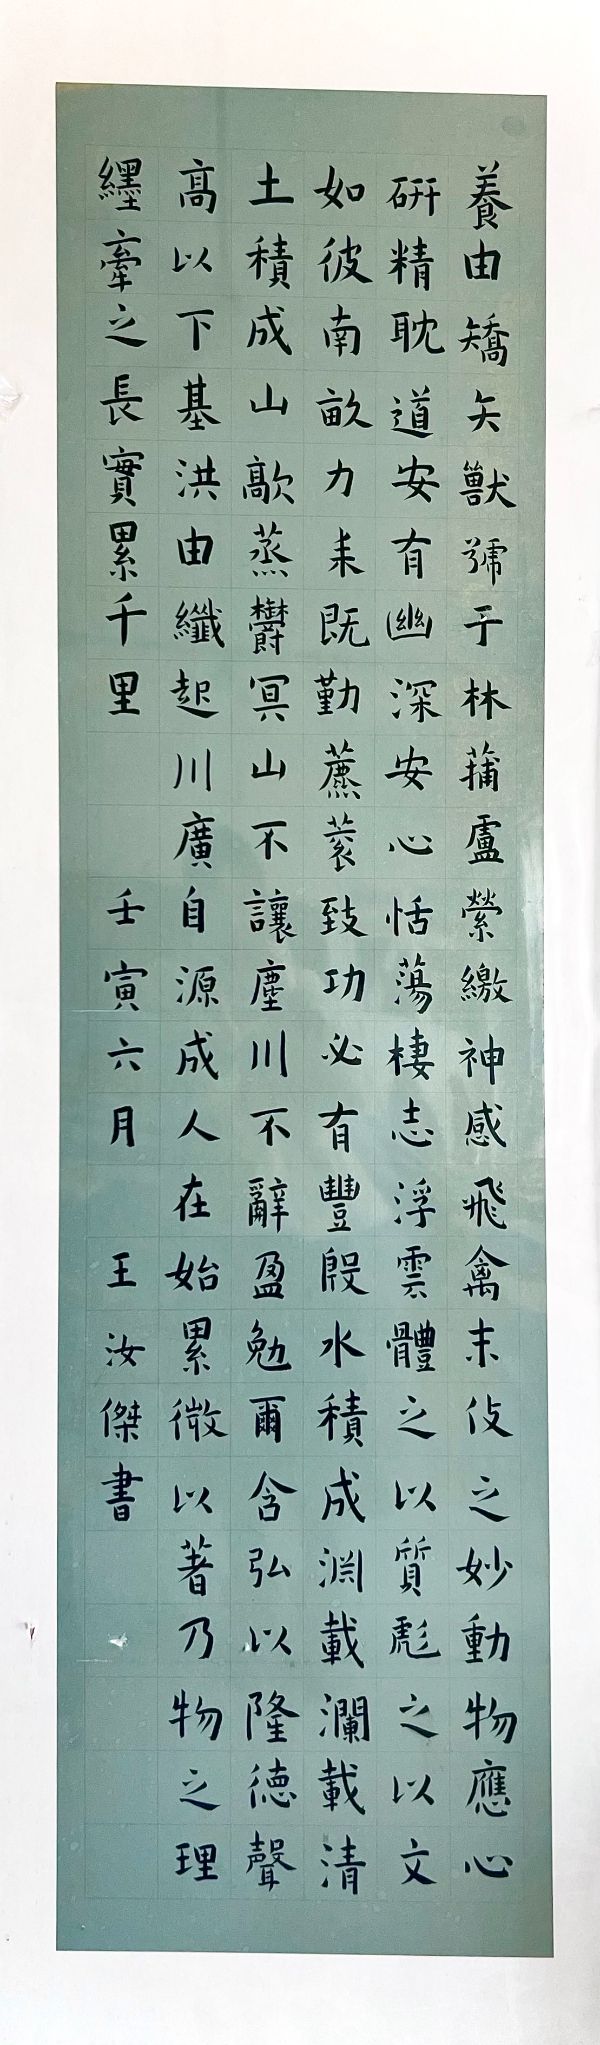 養由矯矢獸號于林蒱盧縈繳神感飛禽末伎之妙動物應心
研精耽道安有幽深安心恬蕩棲志浮雲體之以質彪之以文
如彼南畝力耒既勤藨蔉致功必有豐殷水積成淵載瀾載清
土積成山歊蒸鬱冥山不讓塵川不辭盈勉爾含弘以隆德聲
高以下基洪由纖起川廣自源成人在始累微以著乃物之理
纆牽之長實累千里 壬寅六月 王汝傑書